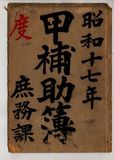 昭和十七年
度
甲補助簿
庶務課